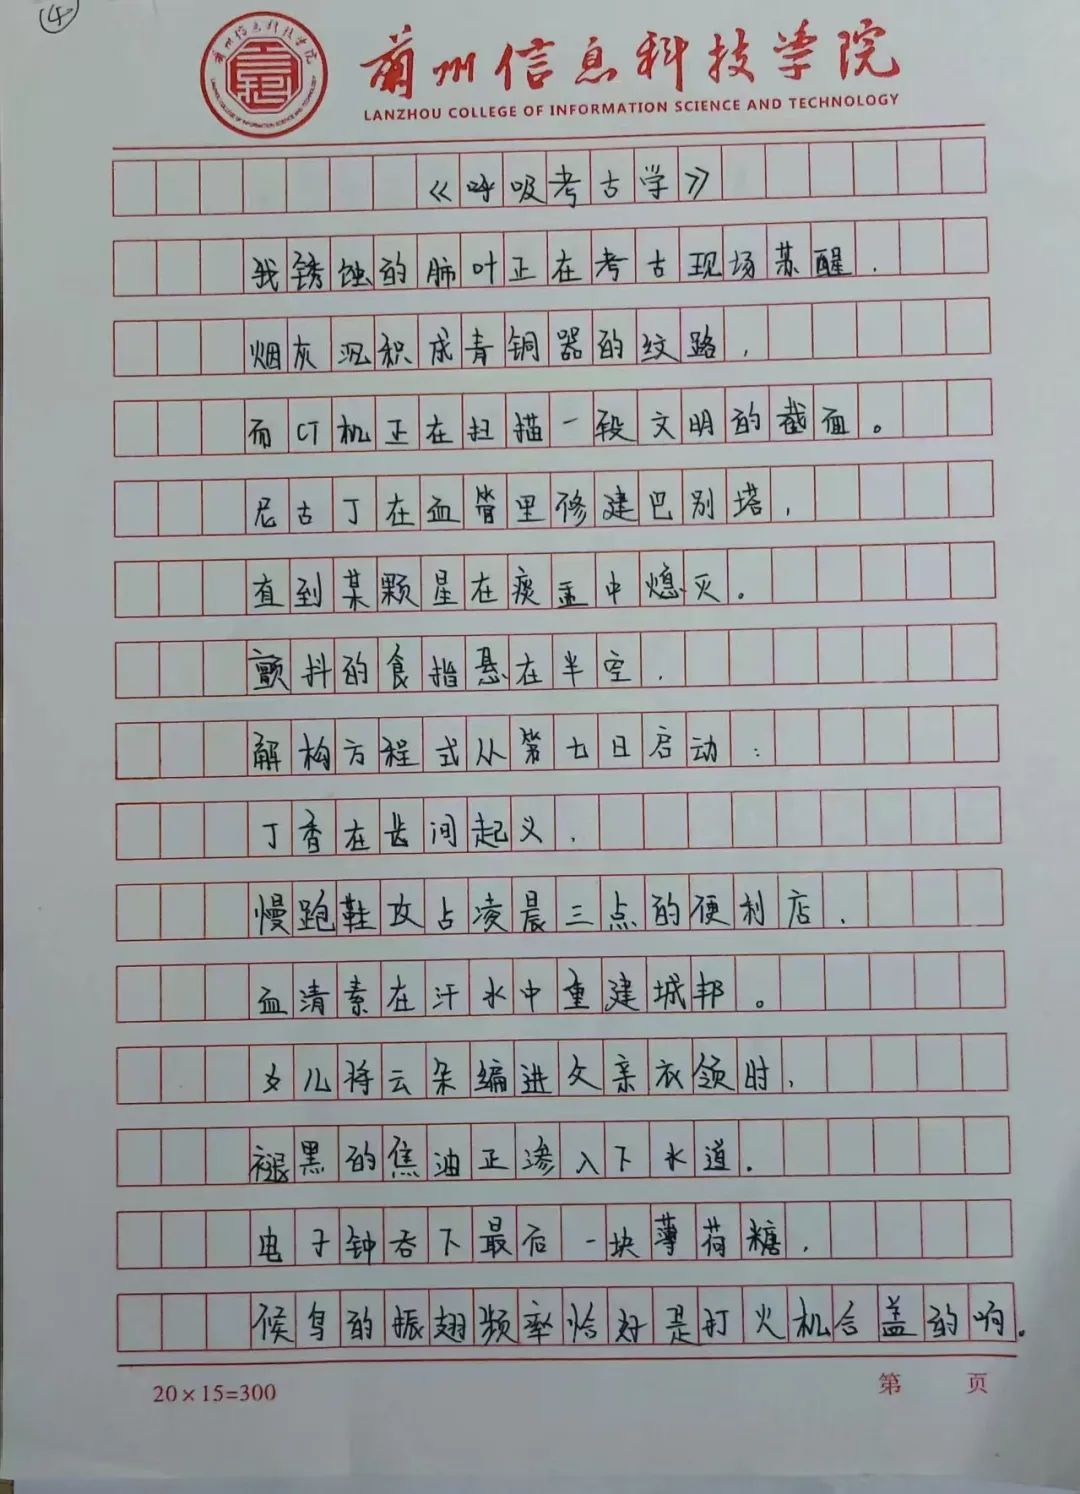 ④
兰州信息科技学院
LANZHOU COLLEGE OF INFORMATION SCIENCE AND TECHNOLOGY
《呼吸考古学》
我锈蚀的肺叶正在考古现场苏醒，
烟灰沉积成青铜器的纹路，
而CT机正在扫描一段文明的截面。
尼古丁在血管里修建巴别塔，
直到某颗星在痰盂中熄灭。
颤抖的食指悬在半空，
解构方程式从第七日启动：
丁香在齿间起义，
慢跑鞋攻占凌晨三点的便利店，
血清素在汗水中重建城邦。
女儿将云朵编进父亲衣领时，
褪黑的焦油正渗入下水道。
电子钟吞下最后一块薄荷糖，
候鸟的振翅频率恰好是打火机合盖的响。
20×15=300
第 页